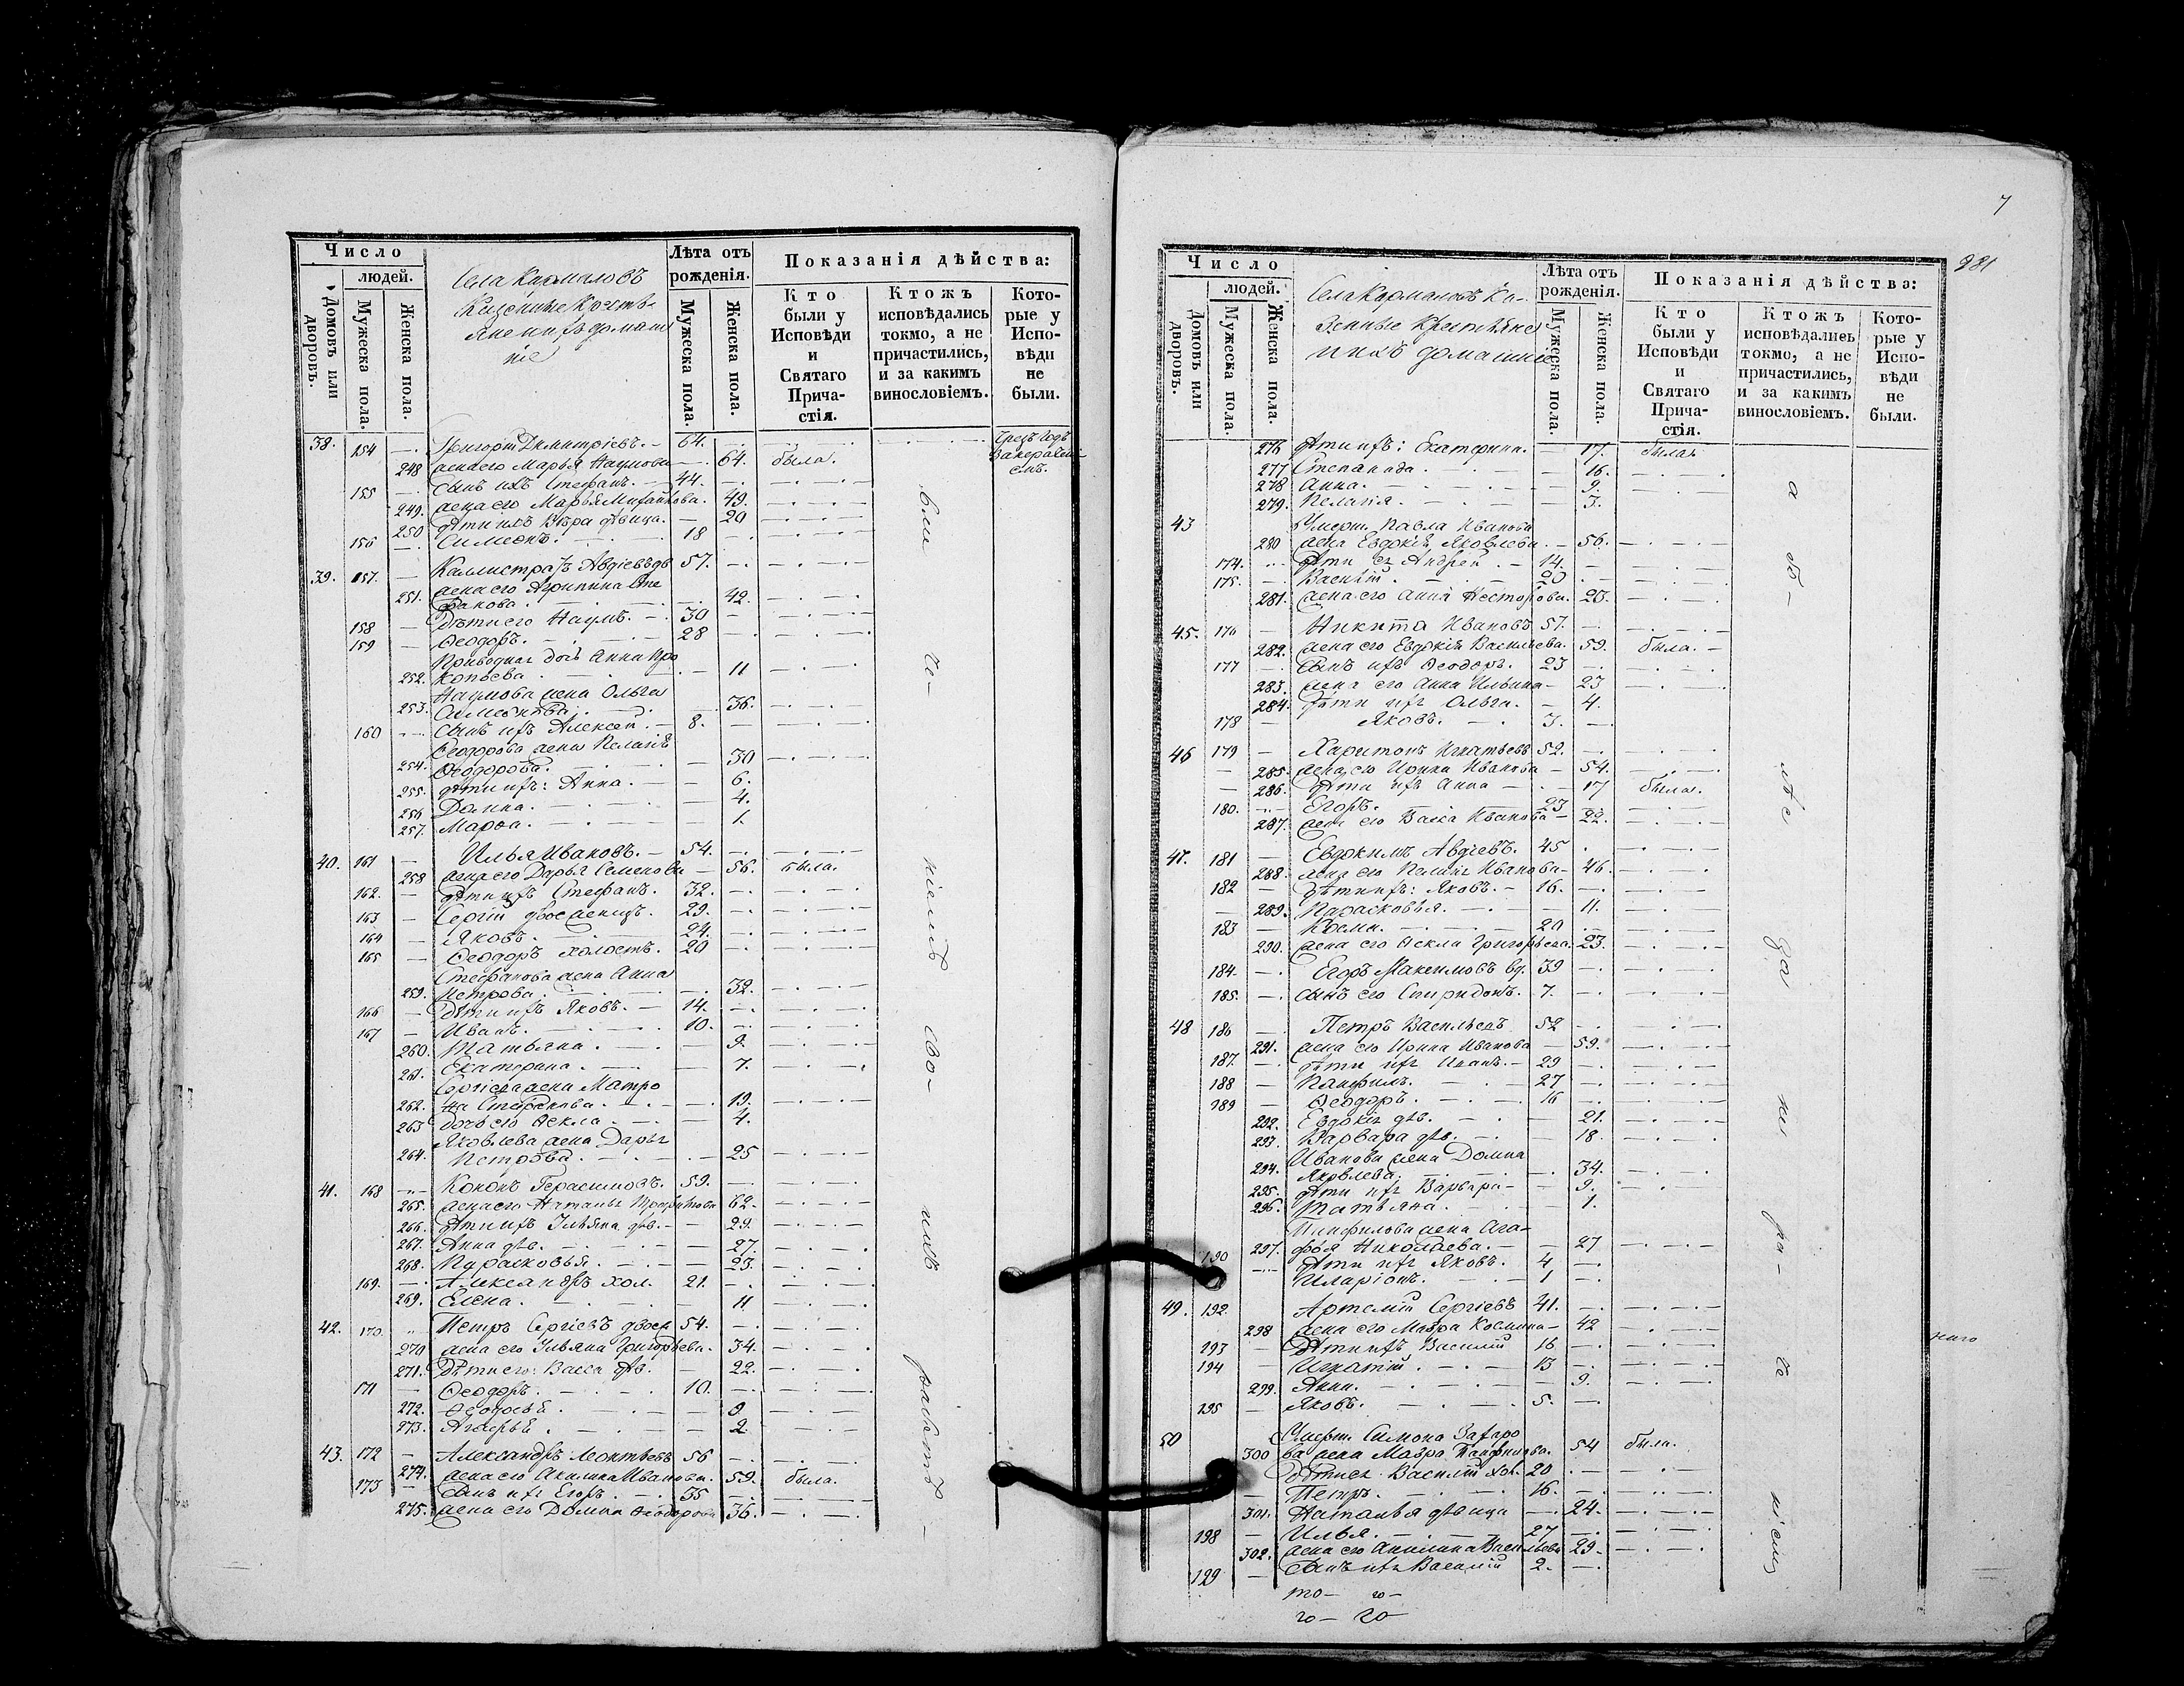 Число
людей.
Домовъ или дворовъ.
Мужеска пола.
Женска пола.
Казенные Крестьяне и ихъ домашніе
Лѣта отъ рожденія.
Мужеска пола.
Женска пола.
Показанія дѣйства:
Кто были у Исповѣди и Святаго Причастія.
Ктожъ исповѣдались токмо, а не причастились, и за какимъ винословіемъ.
Которые у Исповѣди не были.
38. 154 Григорій Димитріевъ. 64.
248 жена его Марья Наумова 64. была.
155 сынъ ихъ Стефанъ. 44.
249. жена его Марья Михайлова. 49.
250 дѣти ихъ Вѣра дѣвица. 20
156 Симеонъ. 18
39. 157. Каллистратъ Авдіевъ 57.
251. жена его Агрипина Сте
фанова. 42.
158 Дѣти его Наумъ. 30
159 Ѳеодоръ. 28
Приводная дочь Анна Про
252. копьева 11
Наумова жена Ольга
253. Симеонова 36.
160 сынъ ихъ Алексей. 8.
Ѳеодорова жена Пелагія
254. Ѳеодорова. 30
255. дѣти ихъ: Анна. 6.
256 Домна. 4.
257. Марѳа. 1.
40. 161 Илья Ивановъ. 54.
258 жена его Дарья Семенова 56. была.
162. дѣти ихъ Стефанъ. 32.
163 Сергій двоеженецъ. 29.
164 Яковъ. 24.
165 Ѳеодоръ холостъ. 20
Стефанова жена Анна
259. Петрова. 32.
166 Дѣти ихъ Яковъ. 14.
167 Иванъ. 10.
260. Татьяна. 9.
261. Екатерина. 7.
Сергіева жена Матро
262. на Стефанова. 19.
263 дочь его Ѳекла. 4.
Яковлева жена Дарья
264. Петрова. 25
41. 168 Кононъ Герасимовъ. 59.
265. жена его Наталья 62.
266. дѣти ихъ Ульяна дѣв. 29.
267. Анна дѣв. 27.
268. Парасковья. 23.
169. Александръ хол. 21.
269. Елена. 11
42. 170. Петръ Сергіевъ двоеж 54.
270 жена его Ульяна Григорьева. 34.
271. Дѣти его: Васса дѣв. 22.
171 Ѳеодоръ. 10.
272. Ѳеодосья. 9
273. Агафья. 2.
43. 172 Александръ Леонтьевъ 56
274. жена его Акилина Иванова. 59. была.
173 Сынъ ихъ Егоръ. 35
275. жена его Домна Ѳеодорова 36.
7
281
Число
людей.
Домовъ или дворовъ.
Мужеска пола.
Женска пола.
Села Кармановъ Ка-
зенные Крестьяне
и ихъ домашніе
Лѣта отъ рожденія.
Мужеска пола.
Женска пола.
Показанія дѣйства:
Кто были у Исповѣди и Святаго Причастія.
Ктожъ исповѣдались токмо, а не причастились, и за какимъ винословіемъ.
Которые у Исповѣди не были.
276 Дѣти ихъ: Екатерина. 17. была
277 Степанида. 16.
278 Анна. 9.
279. Пелагія. 3.
43 Умерш. Павла Иванова
280 жена Евдокія Яковлева. 56.
174. Дѣти ея Андрей. 14.
175. Василій. 20
281. жена его Анна Несторова. 20.
45. 176 Никита Ивановъ 57.
282. жена его Евдокія Васильева. 59. была.
177 Сынъ ихъ Ѳеодоръ. 23
283. жена его Анна Ильина 23
284. дѣти ихъ Ольга. 4.
178 Яковъ. 3.
46 179 Харитонъ Игнатьевъ 52.
285. жена его Ирина Иванова 54.
286. Дѣти ихъ Анна 17 была.
180. Егоръ. 23
287. жена его Васса Иванова 22.
47. 181 Евдокимъ Авдіевъ. 45
288. жена его Пелагія Иванова 46.
182 Дѣти ихъ: Яковъ. 16.
289. Парасковья. 11.
183 Косма. 20
290. жена его Ѳекла Григорьева. 23.
184. Егоръ Максимовъ вд. 39
185. сынъ его Спиридонъ. 7.
48 186 Петръ Васильевъ 52
291. жена его Ирина Иванова 59.
187. дѣти ихъ Иванъ. 29
188 Панфилъ. 27
189 Ѳеодоръ. 16
292. Евдокія дѣв. 21.
293. Варвара дѣв. 18.
Иванова жена Домна
294. Яковлева. 34.
295. дѣти ихъ Варвара 9.
296. Татьяна. 1.
Панфилова жена Ага-
297. фья Николаева. 27
190 Дѣти ихъ Яковъ. 4
Иларіонъ. 1
49. 192. Артемій Сергіевъ 41.
298 жена его Мавра Космина 42
193 Дѣти ихъ Василій 16
194 Игнатій 13
299. Анна. 9.
195 Яковъ. 5.
50 Умерш. Симона Захаро
300 ва жена Мавра Панфилова. 54 была.
Дѣти ея Василій хол. 20
Петръ. 16.
301. Наталья дѣвица 24.
198 Илья. 27
302. жена его Акилина Васильева 29.
199 Сынъ ихъ Василій 2.